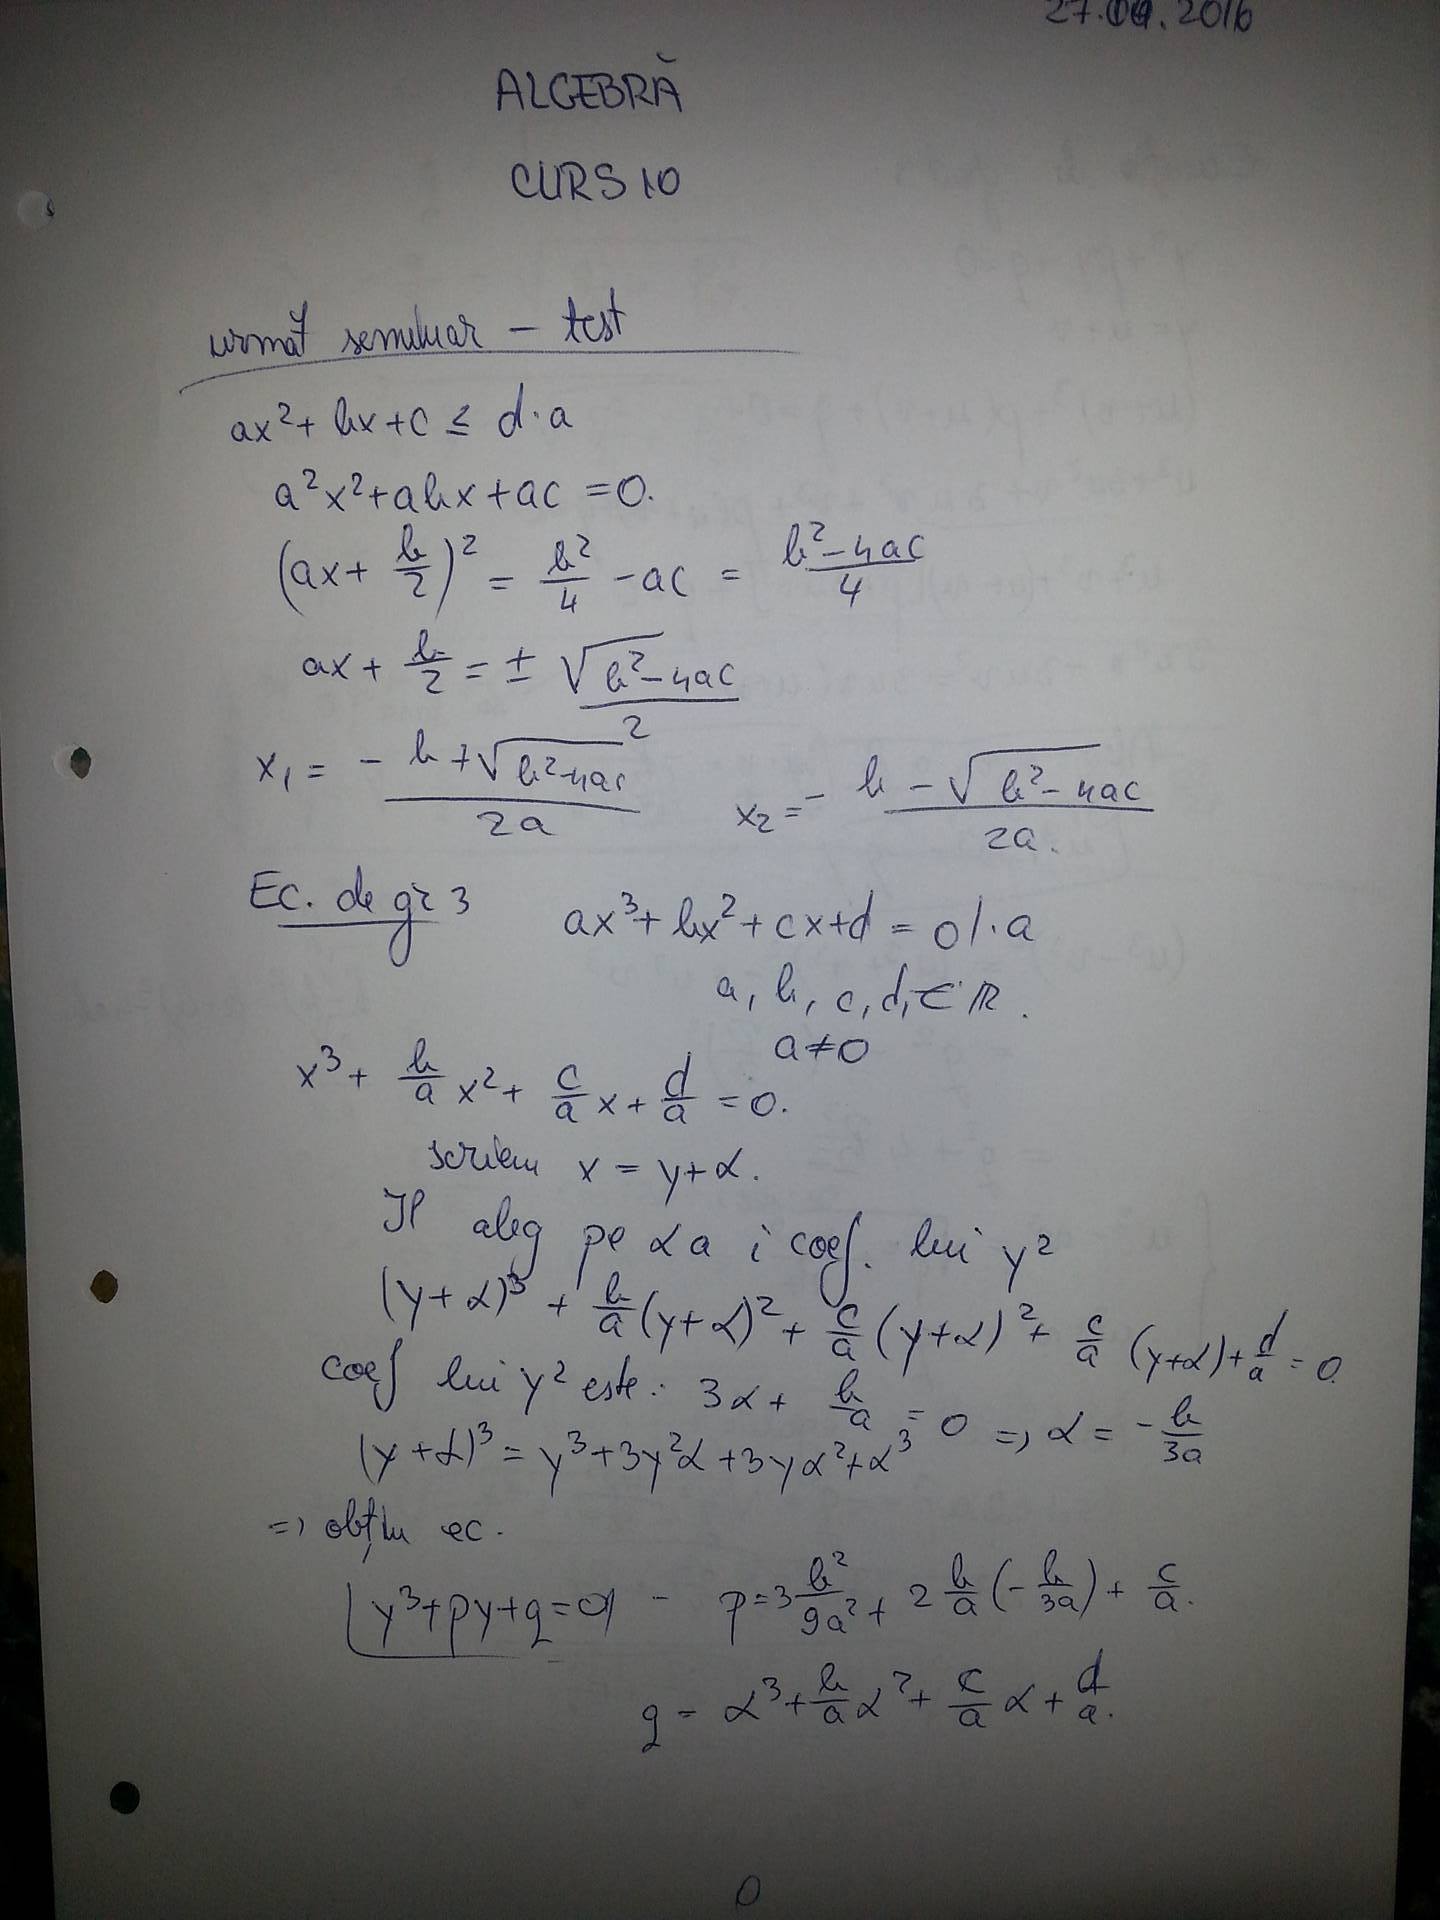 27.04.2016
ALGEBRĂ
CURS 10
următ seminar – test
ax² + bx + c ≤ d·a
a²x² + abx + ac = 0.
(ax + b/2)² = b²/4 - ac = (b² - 4ac)/4
ax + b/2 = ± √(b² - 4ac)/2
x₁ = (-b + √(b² - 4ac))/2a    x₂ = (-b - √(b² - 4ac))/2a.
Ec. de gr 3    ax³ + bx² + cx + d = 0 |·a
a, b, c, d, ∈ ℝ.
a ≠ 0
x³ + b/a x² + c/a x + d/a = 0.
scriem x = y + α.
Îl aleg pe α a î coef. lui y²
(y + α)³ + b/a (y + α)² + c/a (y + α)² + c/a (y + α) + d/a = 0
coef lui y² este: 3α + b/a = 0 ⇒ α = - b/3a
(y + α)³ = y³ + 3y²α + 3yα² + α³
⇒ obțin ec.
y³ + py + q = 0 – p = 3 b²/9a² + 2 b/a (- b/3a) + c/a.
q = α³ + b/a α² + c/a α + d/a.